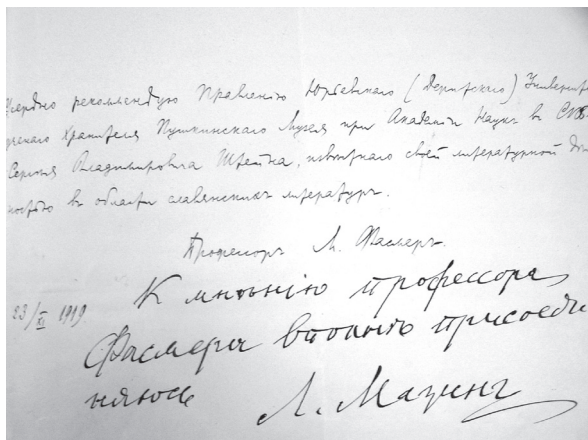 Усердно рекомендую Правленію Юрьевскаго (Дерптскаго) Университе
ученаго хранителя Пушкинскаго Музея при Академіи Наукъ в СПб.
Сергея Владиміровича Штейна, извѣстнаго своей литературной дѣятель
ностью въ области славянскихъ литературъ.
Профессоръ М. Фасмеръ.
23/XI 1919.
К мнѣнію профессора
Фасмера вполнѣ присоеди
няюсь
Л. Мазинг